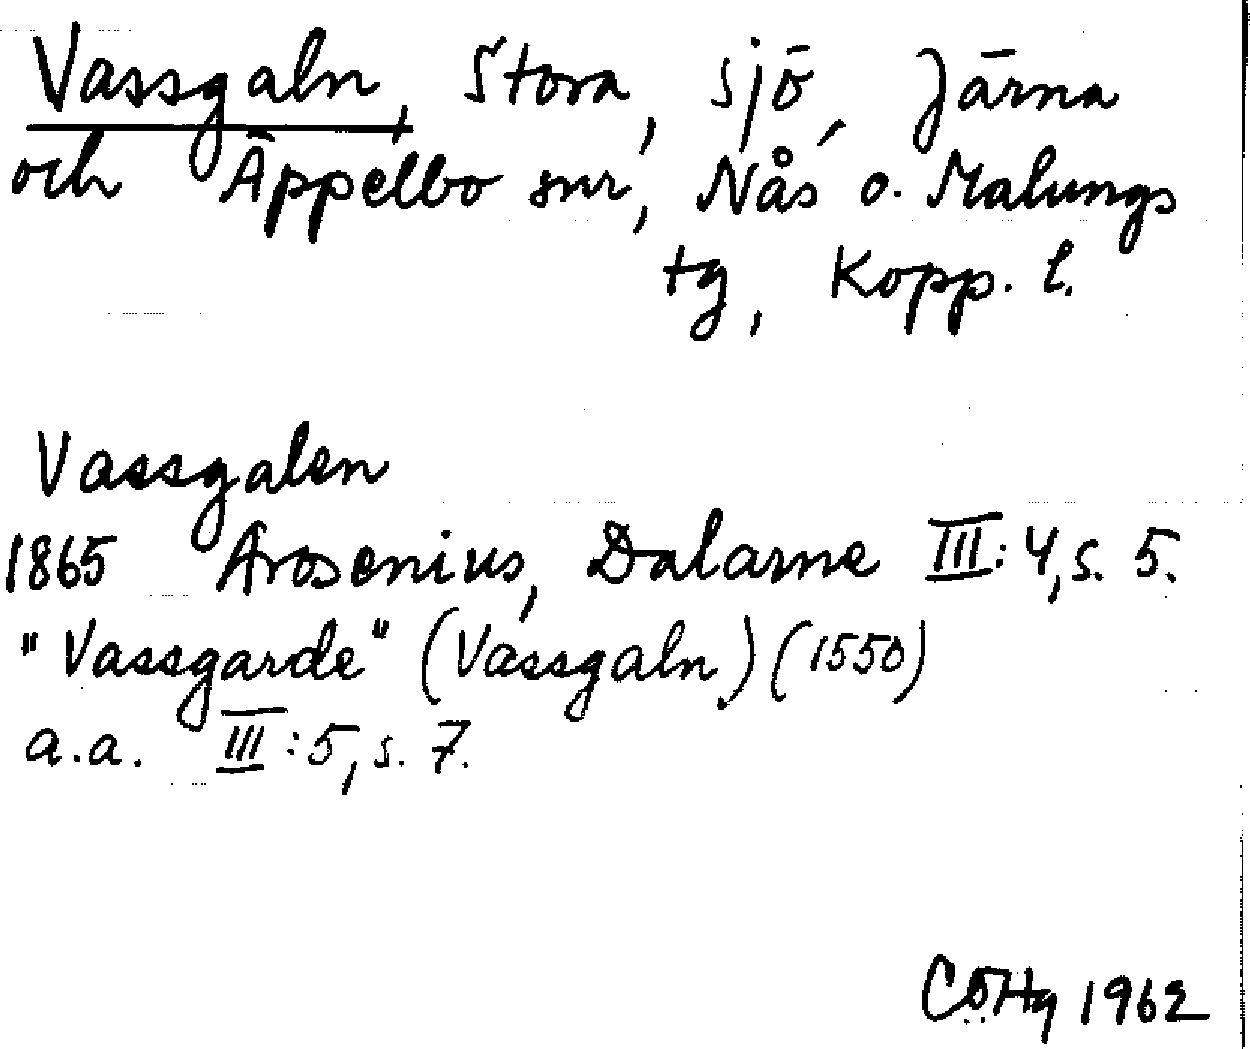 Vassgaln, Stora, sjö, Järna
och Äppelbo snr, Nås o. Malungs
tg, Kopp. l.
Vassgalen
1865 Arosenius, Dalarne III:4, s. 5.
"Vassgarde" (Vassgaln) (1550)
a.a. III:5, s. 7.
CÖHg 1962